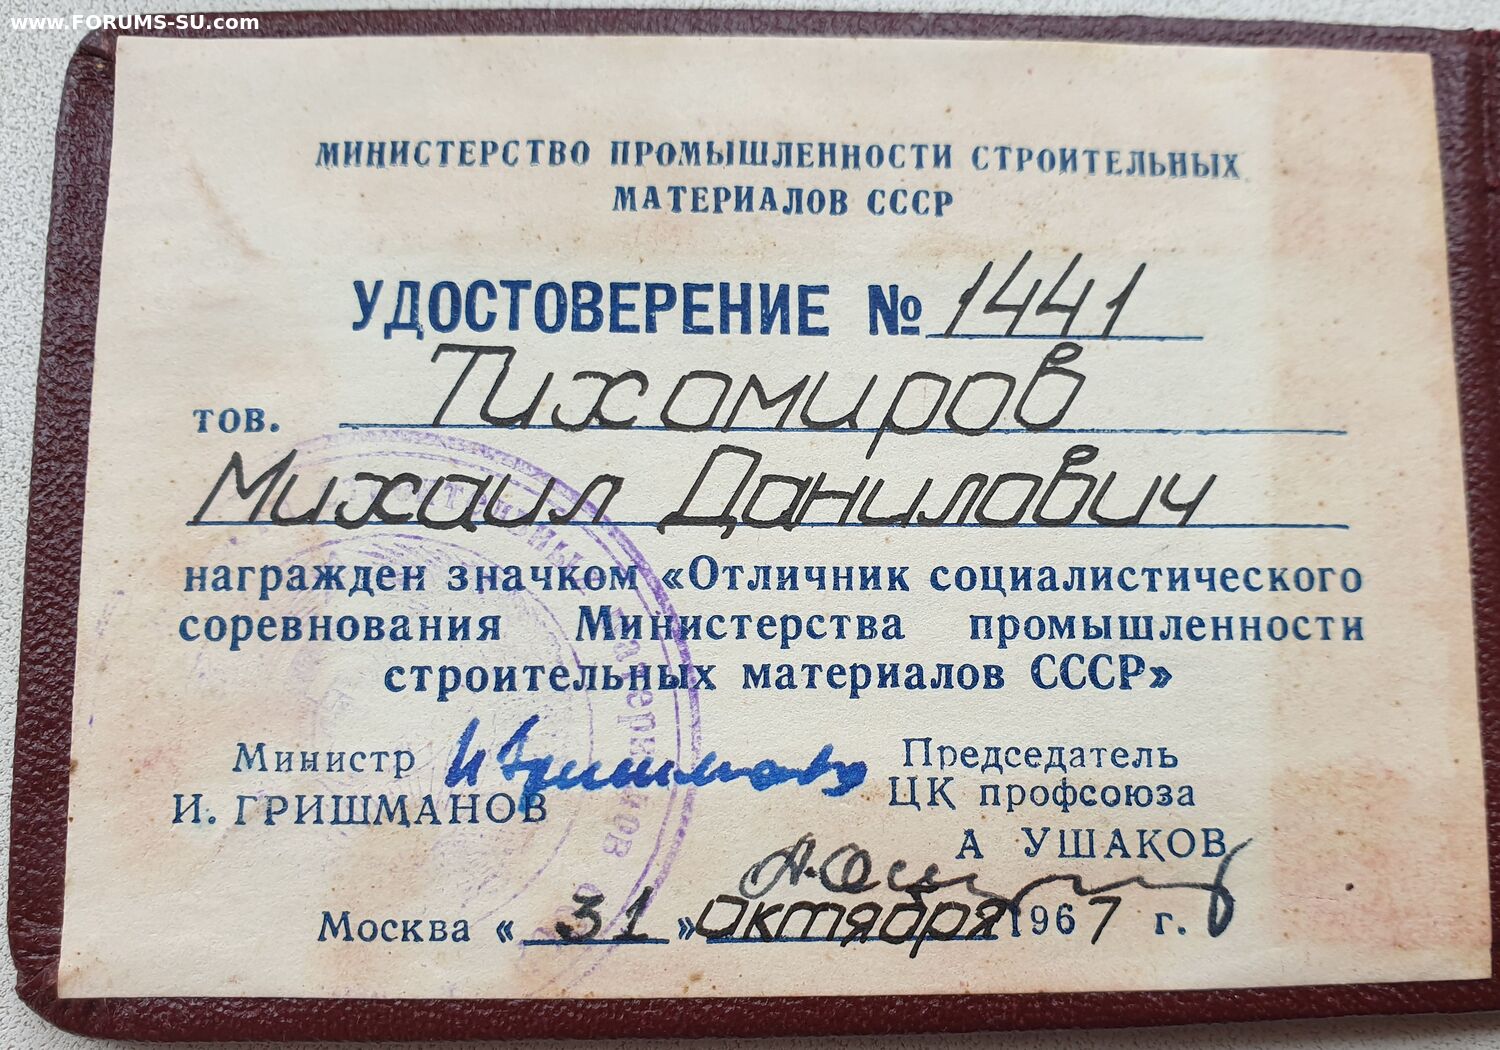 www.FORUMS-SU.com
МИНИСТЕРСТВО ПРОМЫШЛЕННОСТИ СТРОИТЕЛЬНЫХ
МАТЕРИАЛОВ СССР
УДОСТОВЕРЕНИЕ № 1441
тов. Тихомиров
Михаил Данилович
награжден значком «Отличник социалистического
соревнования Министерства промышленности
строительных материалов СССР»
Министр
И. ГРИШМАНОВ
Председатель
ЦК профсоюза
А УШАКОВ
Москва «31» октября 1967 г.